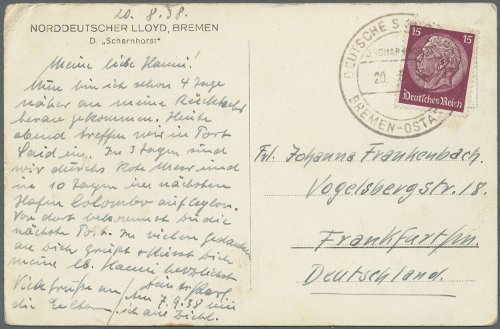 20. 8. 38.
NORDDEUTSCHER LLOYD, BREMEN
D. „Scharnhorst"
Meine liebe Hanni!
Nun bin ich schon 4 Tage
näher an meine Rückkehr
heran gekommen. Heute
abend treffen wir in Port
Said ein. In 3 Tagen sind
wir durchs Rote Meer und
in 10 Tagen im nächsten
Hafen Colombo auf Ceylon.
Von dort bekommst du die
nächste Post. In vielen Gedanken
an Dich grüßt & küsst Dich
meine lb. Hanni herzlichst
Dein
Viele Grüße an
die Eltern.
Am 7.9.38
ich an Dich!
DEUTSCHE S
SCHAR
20.
BREMEN-OSTA
15 15
Deutsches Reich
Frl. Johanna Frankenbach.
Vogelsbergstr. 18.
Frankfurt/m.
Deutschland.